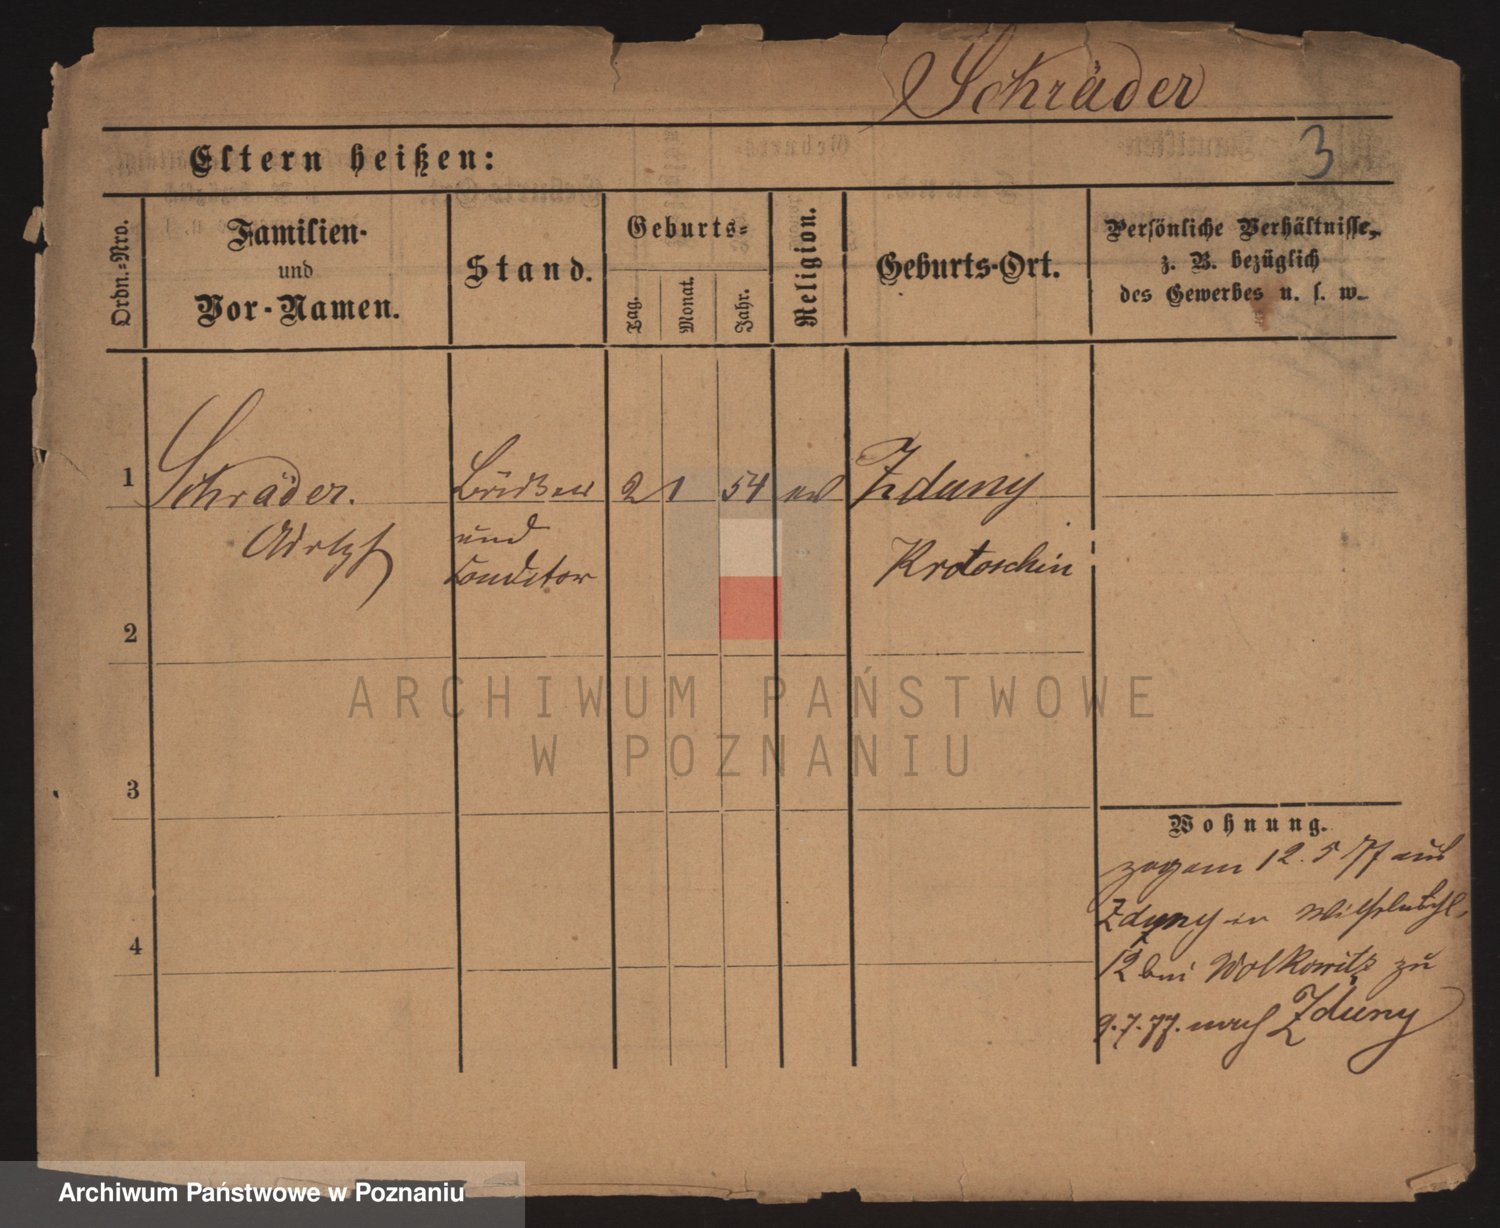 Schräder
3
Eltern heißen:
Ordn.-Nro.
Familien-
und
Vor-Namen.
Stand.
Geburts-
Tag.
Monat.
Jahr.
Religion.
Geburts-Ort.
Persönliche Verhältnisse,
z. B. bezüglich
des Gewerbes u. s. w.
1 Schräder. 2 1 54 ev Zduny
Adolph und Krotoschin
Conditor
2
3
4
Wohnung.
zog am 12. 5 77 aus
Zduny in
12 bei Wolkowitz zu
9.7.77. nach Zduny
ARCHIWUM PAŃSTWOWE
W POZNANIU
Archiwum Państwowe w Poznaniu